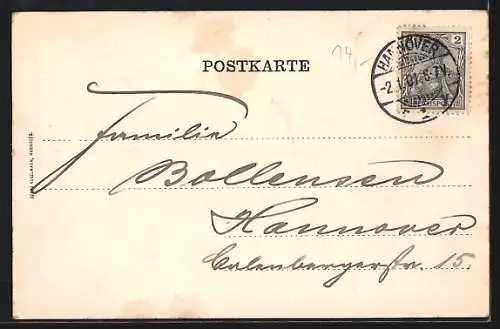 14,-
2
HANNOVER
POSTKARTE
-2.1.01.6-7V.
Familie
Bollensen
Hannover
Calenbergerstr. 15.